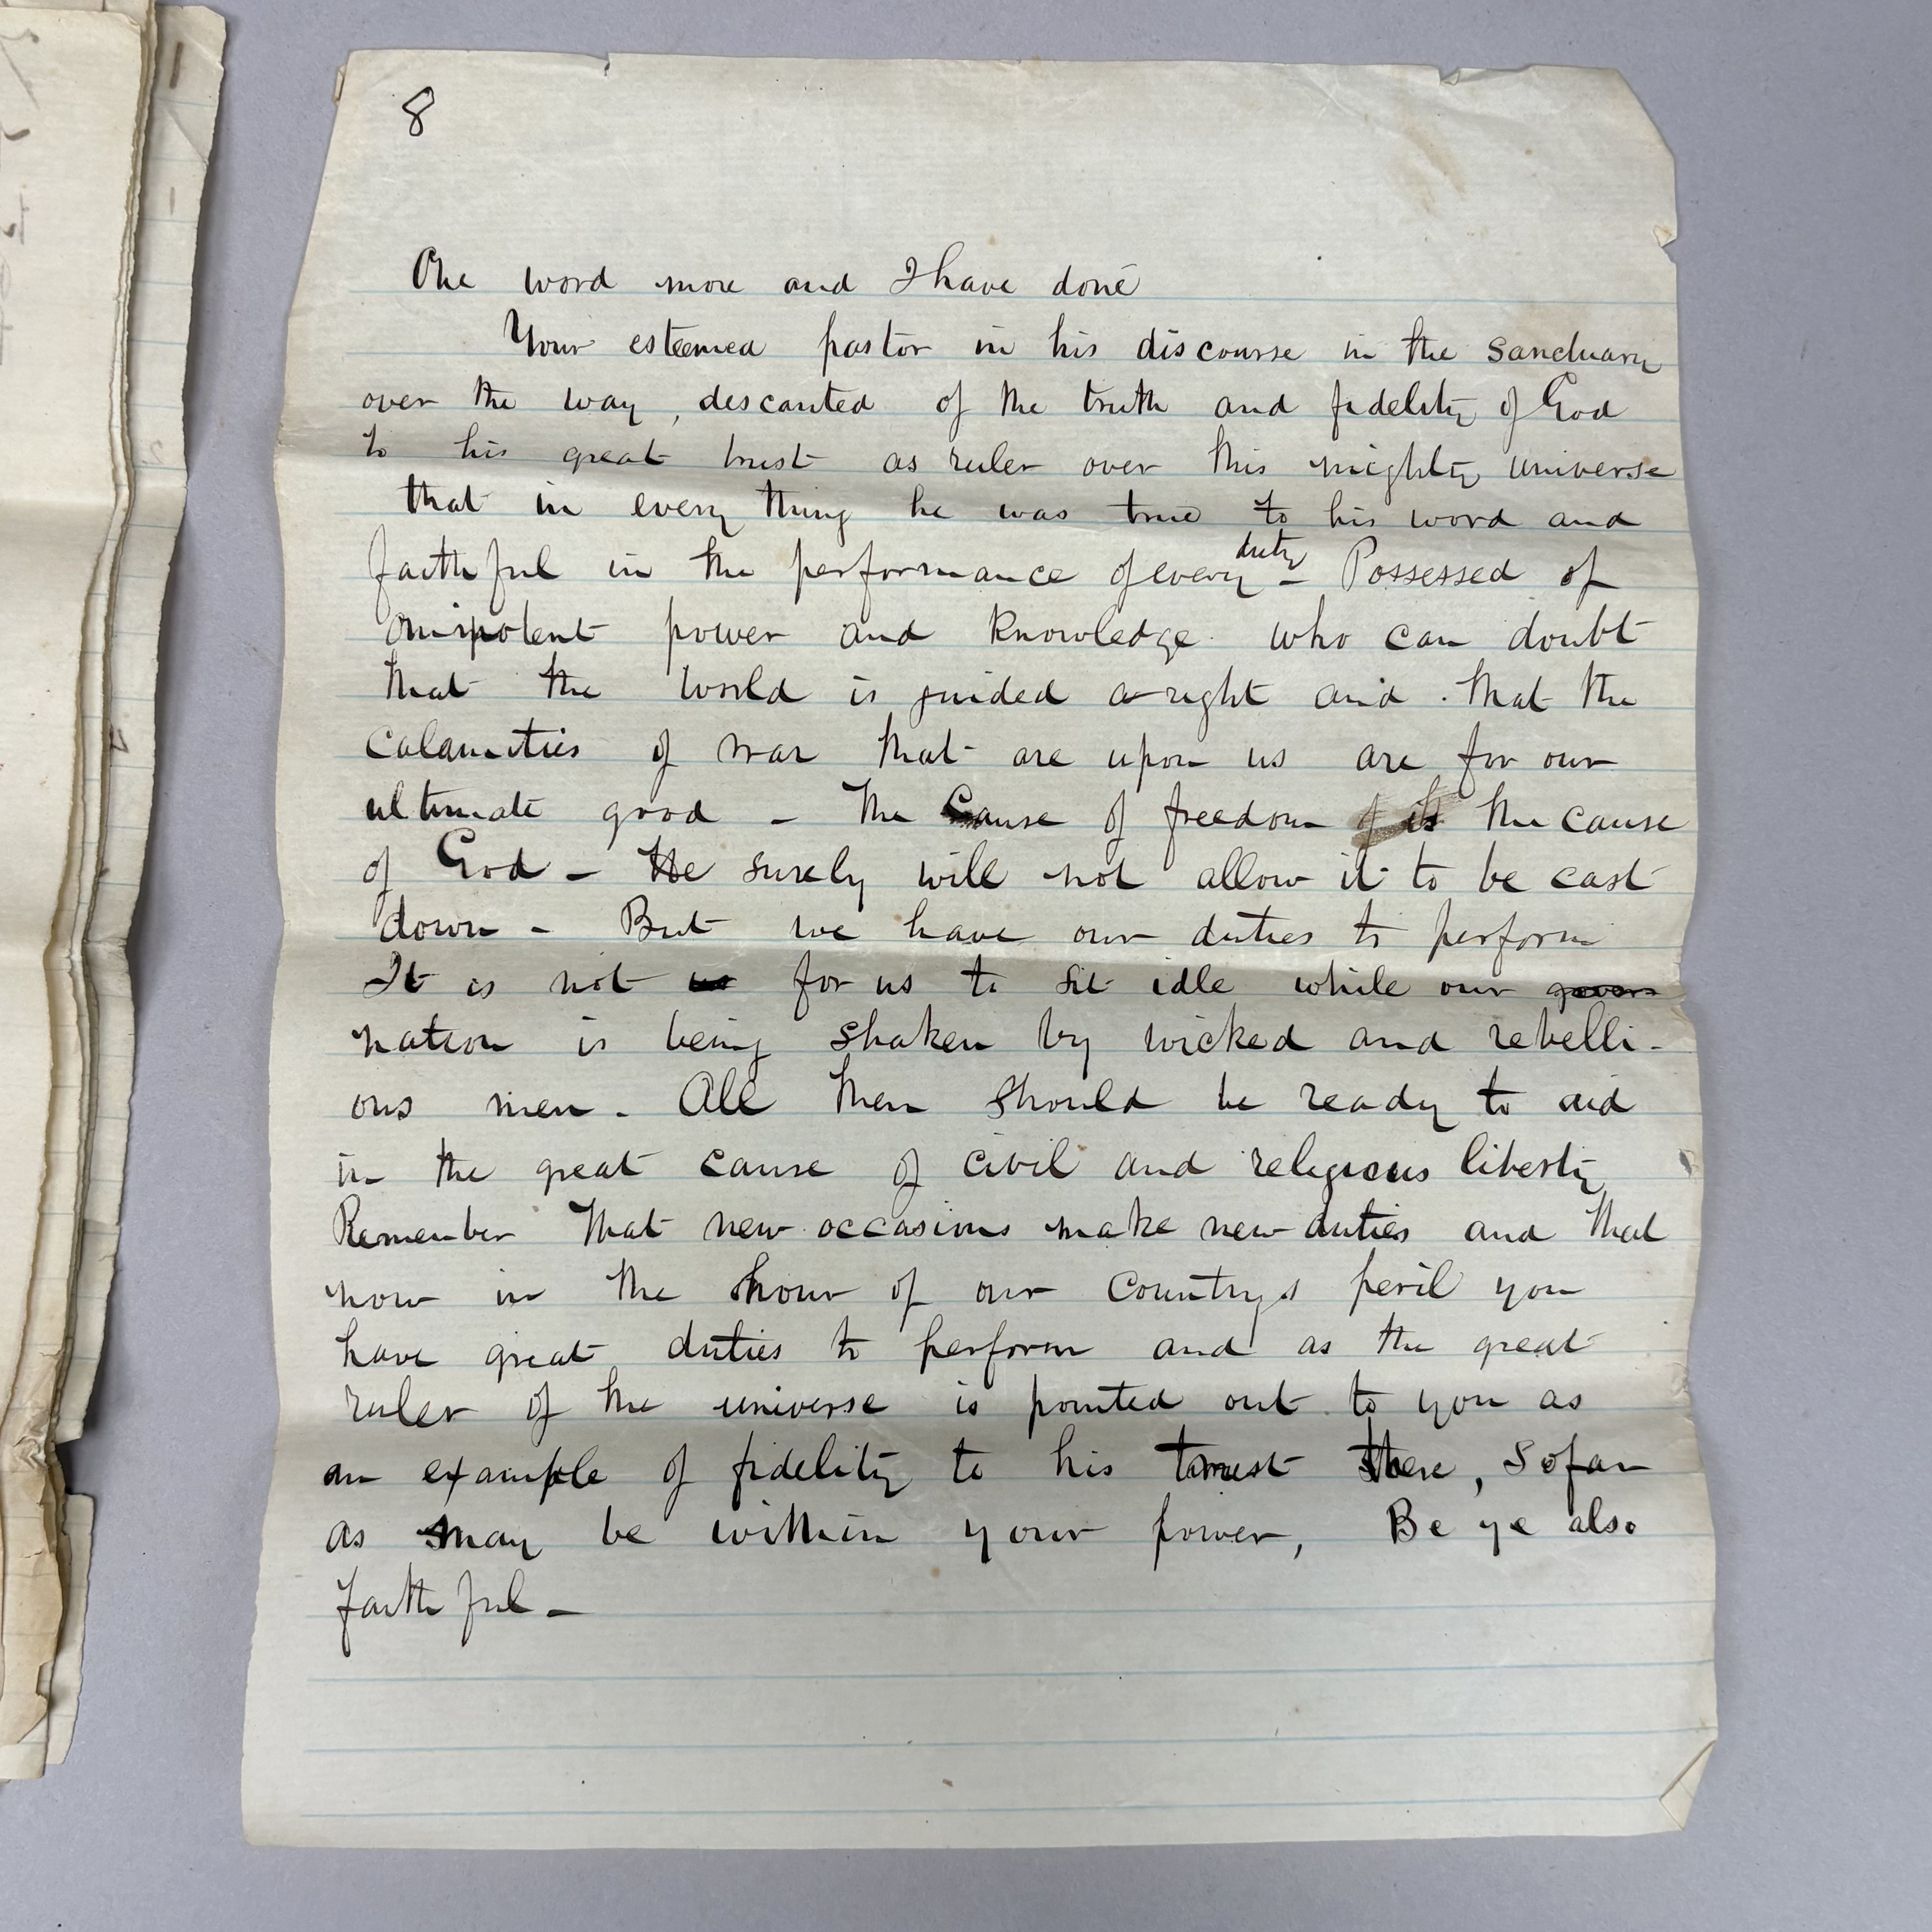 8
One word more and I have done
Your esteemed pastor in his discourse in the Sanctuary
over the way, descanted of the truth and fidelity of God
to his great trust as ruler over this mighty universe
that in every thing he was true to his word and
faithful in the performance of every duty - Possessed of
omnipotent power and knowledge. who can doubt
that the world is guided a-right and . that the
calamities of war that are upon us are for our
ultimate good - The Cause of freedom is the cause
of God - He surely will not allow it to be cast
down - But we have our duties to perform
It is not for us to sit idle while our govern
nation is being shaken by wicked and rebelli-
ous men. All then should be ready to aid
in the great cause of civil and religious liberty
Remember that new occasions make new duties and that
now in the hour of our Countrys peril you
have great duties to perform and as the great
ruler of the universe is pointed out to you as
an example of fidelity to his trust , So far
as may be within your power, Be ye also
faithful -